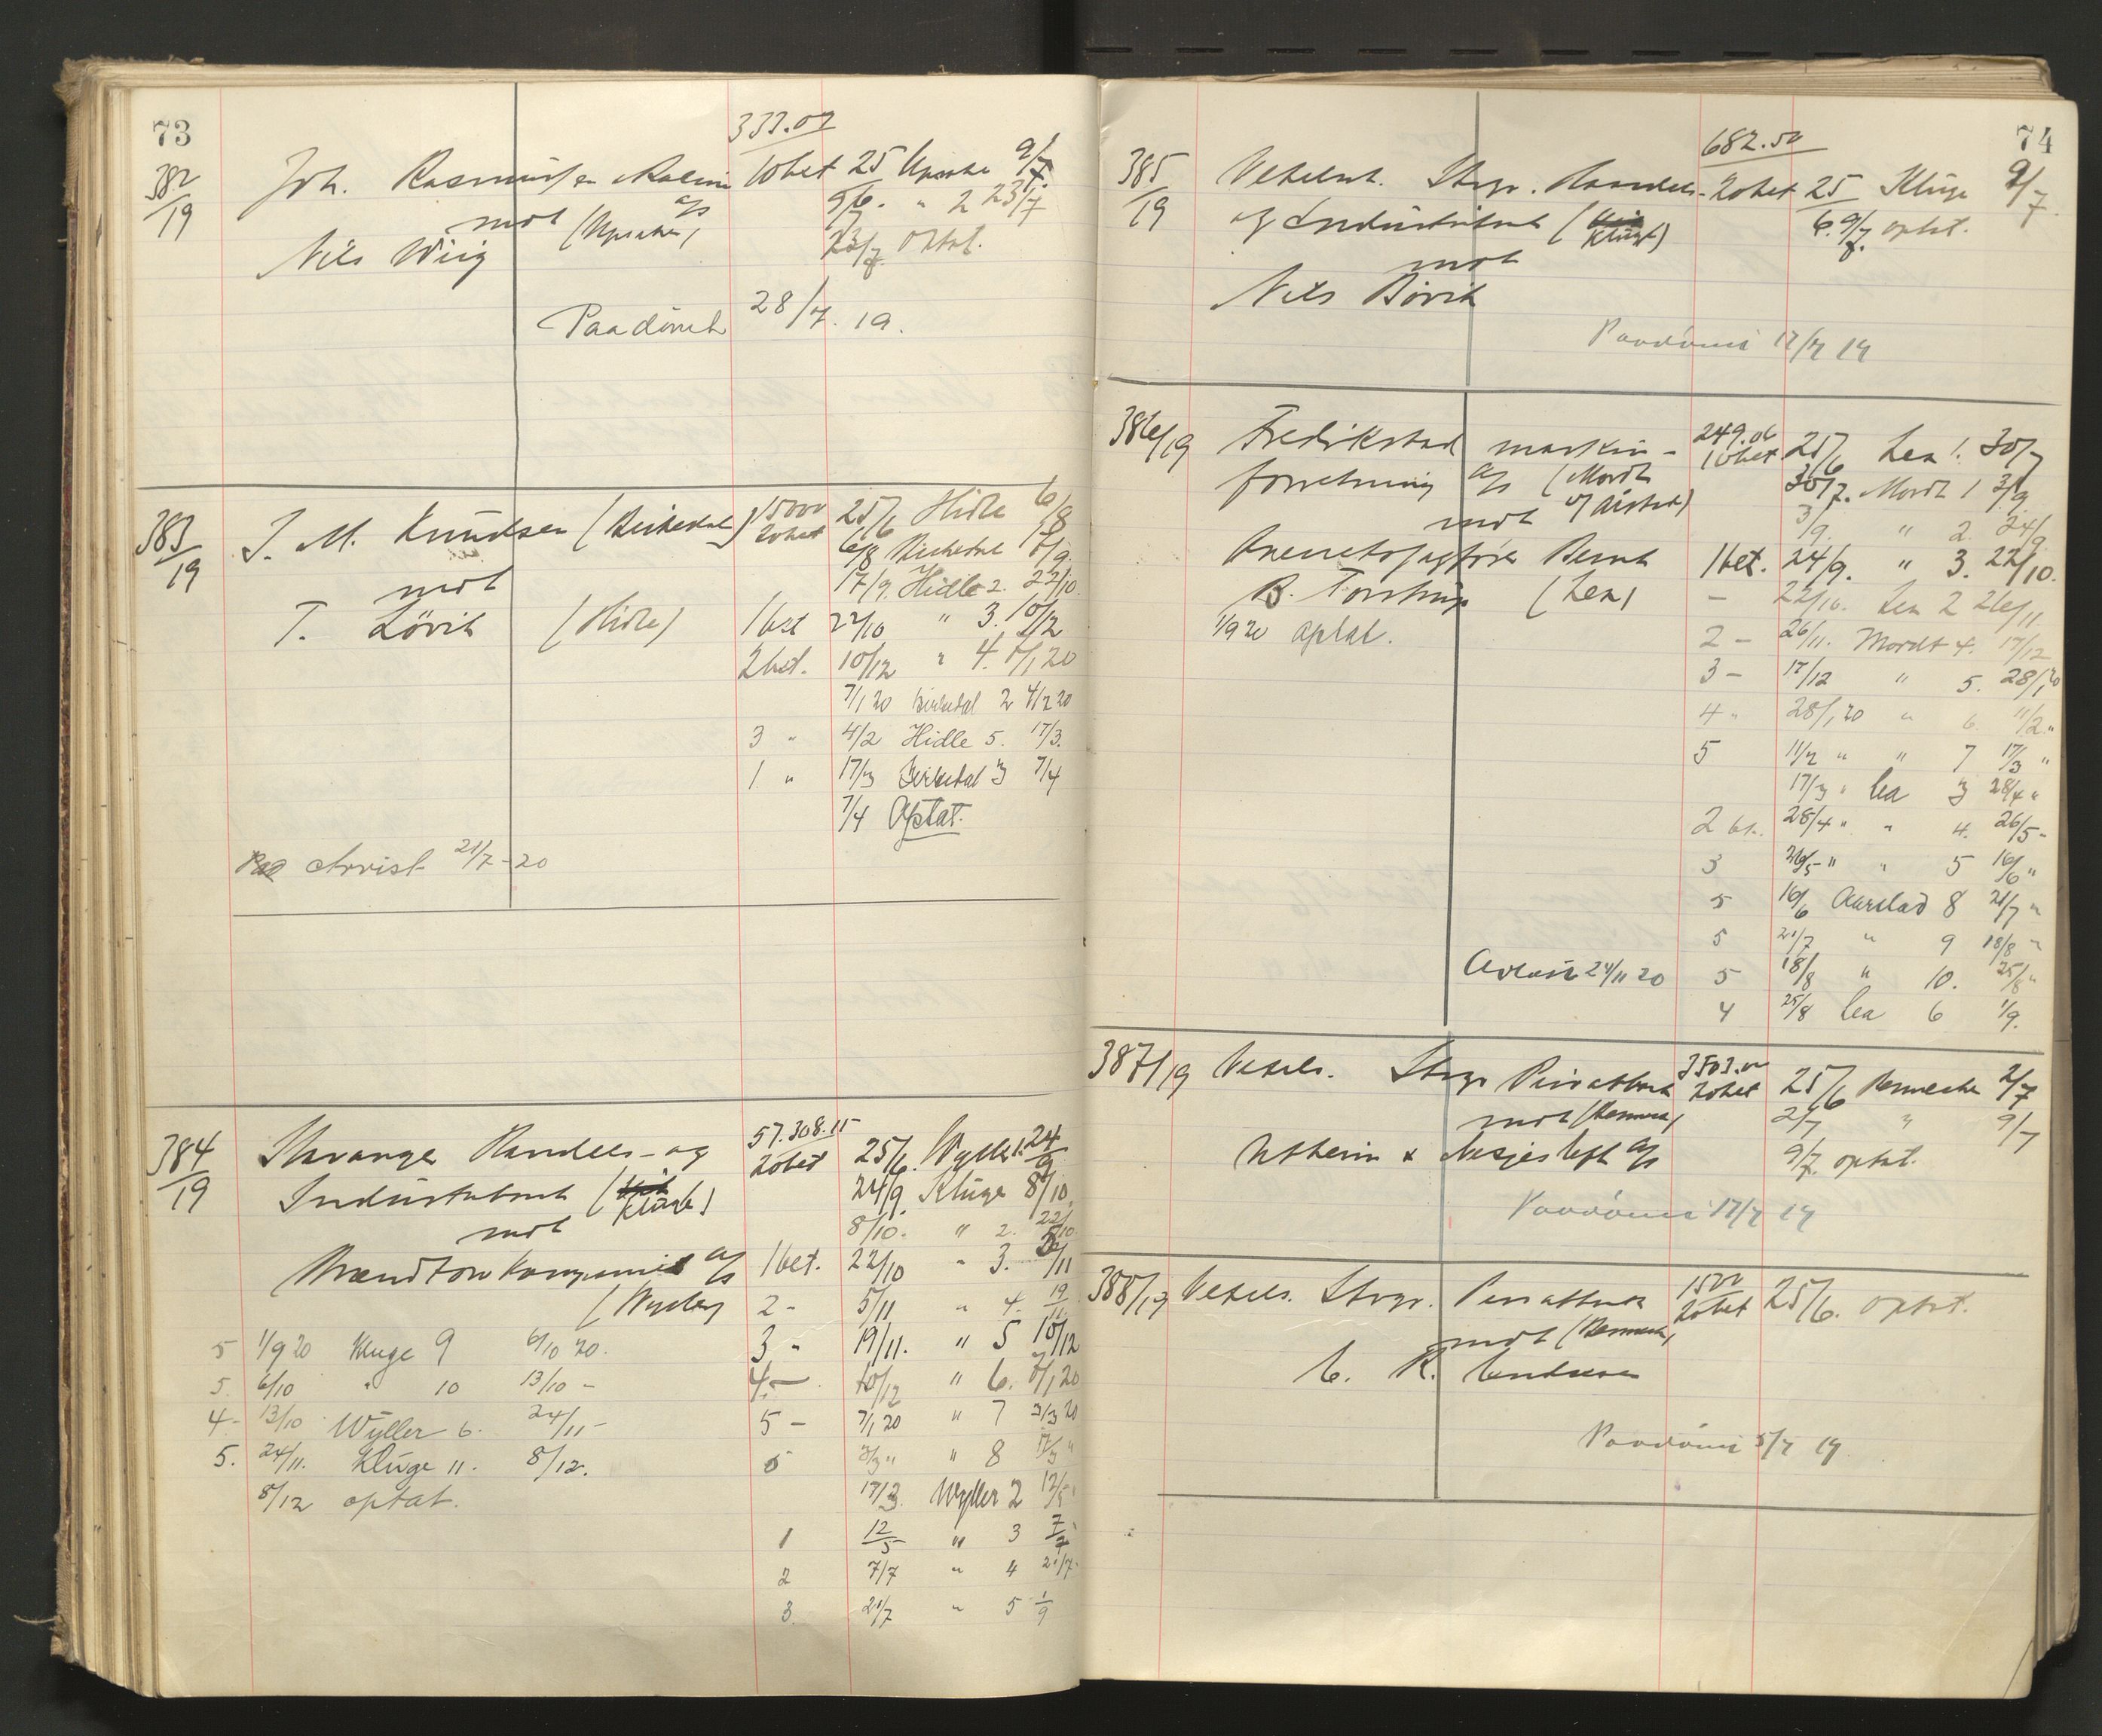 73
333.07
382/19 Joh. Rasmussen 10bet 25 9/7
mot a/s 25/6. " 2 23/7
Nils Wiig 23/7 optat.
Paadömt 28/7. 19.
383/19 J. M. Knudsen (Birkedal) 1500 20bet 25/6 Hidle 6/8
6/8 Birkedal 17/9
mot 17/9. Hidle 2. 22/10
T. Lövik (Hidle) 1 bet 22/10 " 3. 10/12
2 bet. 10/12 " 4. 7/1 20
7/1 20 Birkedal 2 4/2 20
3 " 4/2 Hidle 5. 17/3.
1 " 17/3 Birkedal 3 7/4
7/4 Optat.
Avvist 21/7-20
384/19 Stavanger Handels- og 57.308.15 20bet 25/6. Wyller 1. 24/9
Industribank (Kluge) 24/9. Kluge 8/10.
mot 8/10. " 2. 22/10
kompani a/s 1 bet. 22/10 " 3. 5/11
(Wyller) 2 - 5/11 " 4. 19/11.
5 1/9 20 Kluge 9 6/10 20. 3 " 19/11. " 5 10/12
5. 6/10 " 10 13/10 - 4. - 10/12 " 6. 7/1 20
4 - 13/10 Wyller 6. 24/11 - 5 - 7/1 20 " 7 3/3 20
5. 24/11. Kluge 11. 8/12. 5 3/3 " " 8 17/3 "
8/12 optat. 17/3. Wyller 2 12/5
1 12/5 " 3 7/7
2 7/7 " 4 21/7
3. 21/7 " 5 1/9
74
682.50
385/19 Vekselsak. Stvgr. Handels- 20bet 25 Kluge 9/7
og Industribank (Kluge) 6. 9/7. optat.
mot
Nils Bövik
Paadömt 17/7 19
386/19 Fredrikstad maskin- 249.06 10bet 25/6 Lea 1. 30/7
forretning a/s (Mordt 30/7. Mordt 1 3/9.
mot og Aarstad) 3/9. " 2. 24/9
Overretssagförer Bernt 1 bet. 24/9. " 3. 22/10.
B. Torstrup (Lea) - 22/10. Lea 2 26/11
1/9 20 optat. 2 - 26/11. Mordt 4. 17/12
3 - 17/12 " 5. 28/1 20
4 " 28/1 20 " 6. 11/2. "
5 11/2 " " 7 17/3 "
17/3 " Lea 3 28/4 "
2 bt. 28/4 " " 4. 26/5 -
3 26/5 - " " 5 16/6 "
5 16/6 Aarstad 8 21/7 "
5 21/7 " 9 18/8 -
Avlest 24/11 20 5 18/8 " 10. 25/8 "
4 25/8 Lea 6 1/9.
387/19 Veksels. Stvgr Privatbank 3503.00 20bet 25/6 2/7
mot 2/7 " 9/7
a/s 9/7. optat.
Paadömt 17/7 19
388/19 Veksels. Stvgr. Privatbank 1500 20bet 25/6. optat.
mot
C. R.
Paadömt 5/7 19